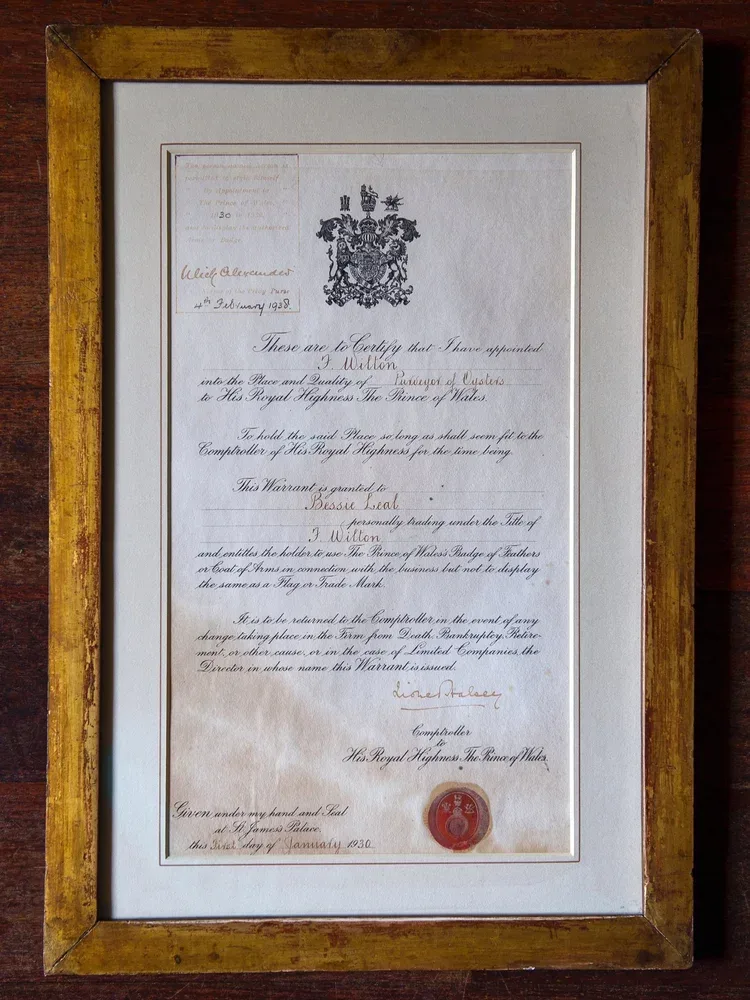 The
permitted to style himself
By Appointment to
The Prince of Wales
1930 to
and to display the Feathers
Ulick Alexander
of the Privy Purse
4th February 1938.
These are to Certify that I have appointed
F. Wilton
into the Place and Quality of Purveyor of Oysters
to His Royal Highness The Prince of Wales.
To hold the said Place so long as shall seem fit to the
Comptroller of His Royal Highness for the time being.
This Warrant is granted to
Bessie Leal
personally trading under the Title of
F Wilton
and entitles the holder to use The Prince of Wales's Badge of Feathers
or Coat of Arms in connection with the business but not to display
the same as a Flag or Trade Mark.
It is to be returned to the Comptroller in the event of any
change taking place in the Firm from Death Bankruptcy Retire-
ment or other cause, or in the case of Limited Companies the
Director in whose name this Warrant is issued.
Lionel Halsey
Comptroller
to
His Royal Highness The Prince of Wales.
Given under my hand and Seal
at St James's Palace.
this First day of January 1930